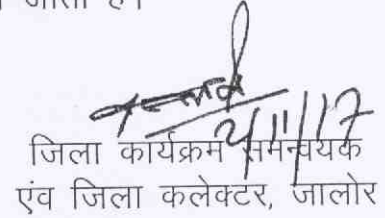 जाता है।
2/11/17
जिला कार्यक्रम समन्वयक
एंव जिला कलेक्टर, जालोर